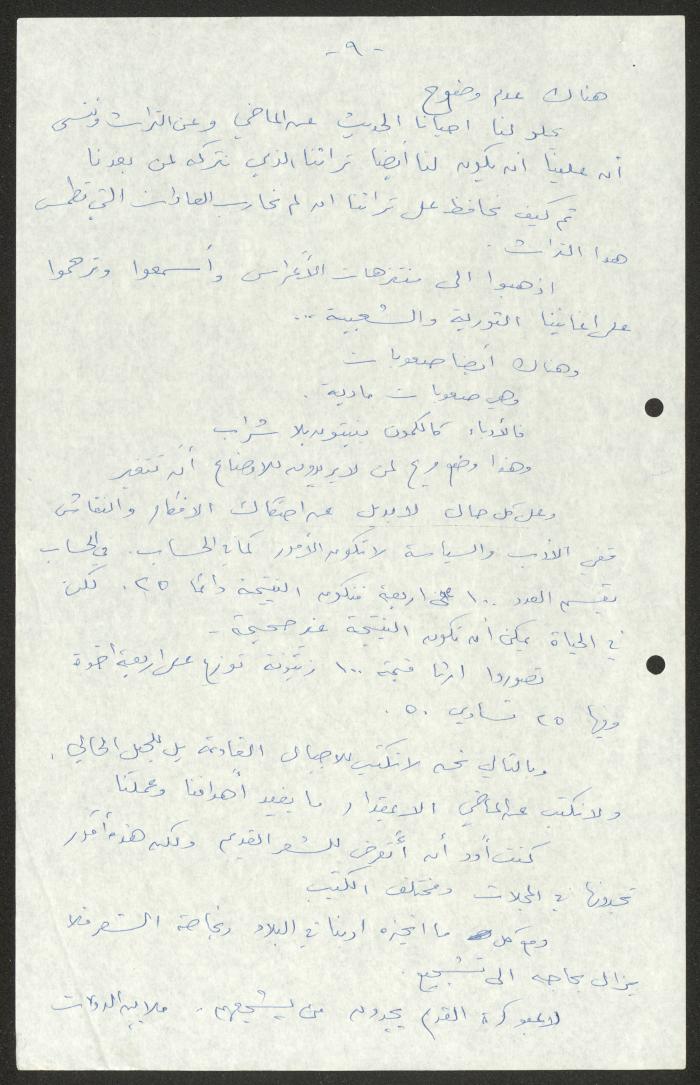 - ٩ -
هناك عدم وضوح
يحلو لنا احيانا الحديث عن الماضي وعن التراث وننسى
أن علينا ان يكون لنا أيضا تراثنا الذي نتركه لمن بعدنا
ثم كيف نحافظ على تراثنا ان لم نحارب العادات التي تطمس
هذا التراث .
اذهبوا الى منتزهات الأعراس وأسمعوا وترحموا
على اغانينا الثورية والشعبية ...
وهناك أيضا صعوبات
وهي صعوبات مادية .
فالأدباء كالكمون ينبتون بلا شراب
وهذا وضع مريح لمن لا يريدون للاوضاع أن تتغير
وعلى كل حال لا بديل عن احتكاك الافكار والنقاش
ففي الأدب والسياسة لا تكون الأمور كما في الحساب . في الحساب
يقسم العدد ١٠٠ على اربعة فتكون النتيجة دائما ٢٥ . لكن
في الحياة يمكن أن تكون النتيجة غير صحيحة -
تصوروا ارثا قيمته ١٠٠ زيتونة توزع على اربعة اخوة
وفيها ٢٥ تساوي ٥٠ .
وبالتالي نحن لا نكتب للاجيال القادمة بل للجيل الحالي .
ولا نكتب عن الماضي الا بمقدار ما يفيد أهدافنا وعملنا
كنت أود أن أتعرض للشعر القديم ولكن هذه أمور
تجدونها في المجلات ومختلف الكتب
ومع كل ما انجزه ادبنا في البلاد وبخاصة الشعر فلا
يزال بحاجه الى تشجيع .
لاعبو كرة القدم يجدون من يشجعهم . ملايين الدولارات